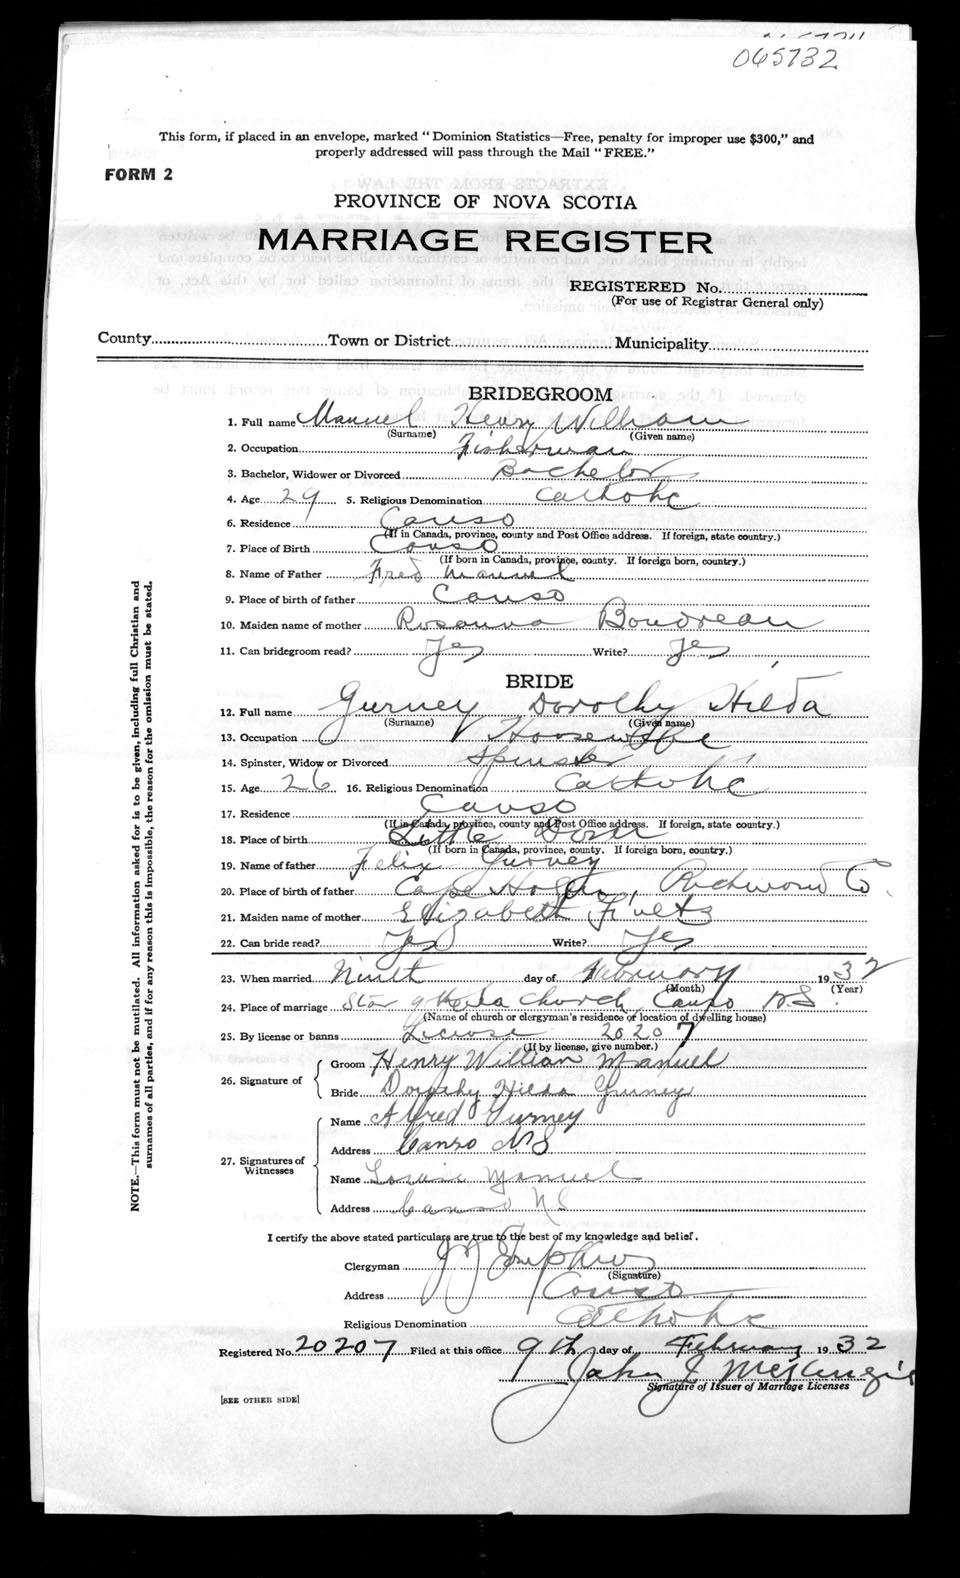 065732
This form, if placed in an envelope, marked "Dominion Statistics—Free, penalty for improper use $300," and
properly addressed will pass through the Mail "FREE."
FORM 2
PROVINCE OF NOVA SCOTIA
MARRIAGE REGISTER
REGISTERED No.
(For use of Registrar General only)
County Town or District Municipality
BRIDEGROOM
1. Full name Manuel Henry William
(Surname) (Given name)
2. Occupation Fisherman
3. Bachelor, Widower or Divorced Bachelor
4. Age 29 5. Religious Denomination Catholic
6. Residence Canso
(If in Canada, province, county and Post Office address. If foreign, state country.)
7. Place of Birth Canso
(If born in Canada, province, county. If foreign born, country.)
8. Name of Father Fred Manuel
9. Place of birth of father Canso
10. Maiden name of mother Rosanna Boudreau
11. Can bridegroom read? Yes Write? Yes
BRIDE
12. Full name Gurney Dorothy Hilda
(Surname) (Given name)
13. Occupation Housewife
14. Spinster, Widow or Divorced Spinster
15. Age 26 16. Religious Denomination Catholic
17. Residence Canso
(If in Canada, province, county and Post Office address. If foreign, state country.)
18. Place of birth Little Dover
(If born in Canada, province, county. If foreign born, country.)
19. Name of father Felix Gurney
20. Place of birth of father Cape Richmond Co.
21. Maiden name of mother Elizabeth
22. Can bride read? Yes Write? Yes
23. When married Ninth day of February 1932
(Month) (Year)
24. Place of marriage Star of the Sea Church Canso N.S.
(Name of church or clergyman's residence or location of dwelling house)
25. By license or banns License 20207
(If by license, give number.)
26. Signature of Groom Henry William Manuel
Bride Dorothy Hilda Gurney
27. Signatures of Witnesses Name Alfred Gurney
Address Canso N.S
Name Manuel
Address Canso N.S
I certify the above stated particulars are true to the best of my knowledge and belief.
Clergyman
(Signature)
Address Canso
Religious Denomination Catholic
Registered No. 20207 Filed at this office 9th day of February 1932
John J McKenzie
Signature of Issuer of Marriage Licenses
[SEE OTHER SIDE]
NOTE.—This form must not be mutilated. All information asked for is to be given, including full Christian and
surnames of all parties, and if for any reason this is impossible, the reason for the omission must be stated.